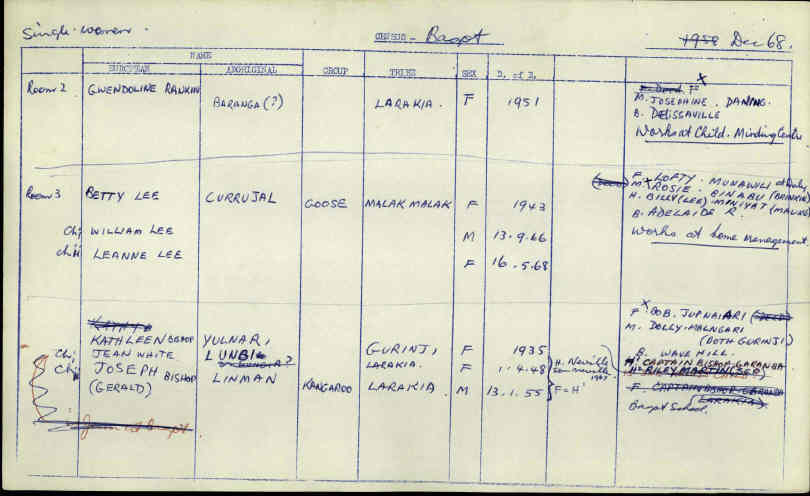 Single women.
CENSUS - Bagot
1958 Dec 68.
NAME
EUROPEAN ABORIGINAL GROUP TRIBE SEX D. of B.
Room 2 GWENDOLINE RANKIN BARANGA(?) LARAKIA. F 1951
F
x
M. JOSEPHINE. DANING.
B. DELISSAVILLE
Works at Child. Minding Centre
Room 3 BETTY LEE CURRUJAL GOOSE MALAK MALAK F 1943
F. LOFTY. MUNAWILI at Daly
M. x ROSIE. BINABU (BRINKIN)
H. BILLY (LEE). MINIYAT (MALAK)
B. ADELAIDE R.
Works at home management
Chi WILLIAM LEE M 13.9.66
Chii LEANNE LEE F 16.5.68
x
F BOB. JUPNAIARI (DECD)
M. DOLLY. MALNGARI
(BOTH GURINJI)
B. WAVE HILL.
KATHY
KATHLEEN BISHOP YULNARI GURINJI F 1935
Chi JEAN WHITE LUNBI LARAKIA. F 1.4.48 H. Neville
Chii JOSEPH BISHOP LINMAN KANGAROO LARAKIA M 13.1.55 F=H'
(GERALD)
H' CAPTAIN BISHOP GARANGA
H² RILEY MARTIN
F. CAPTAIN BISHOP GARANGA
(LARAKIA)
Bagot School.